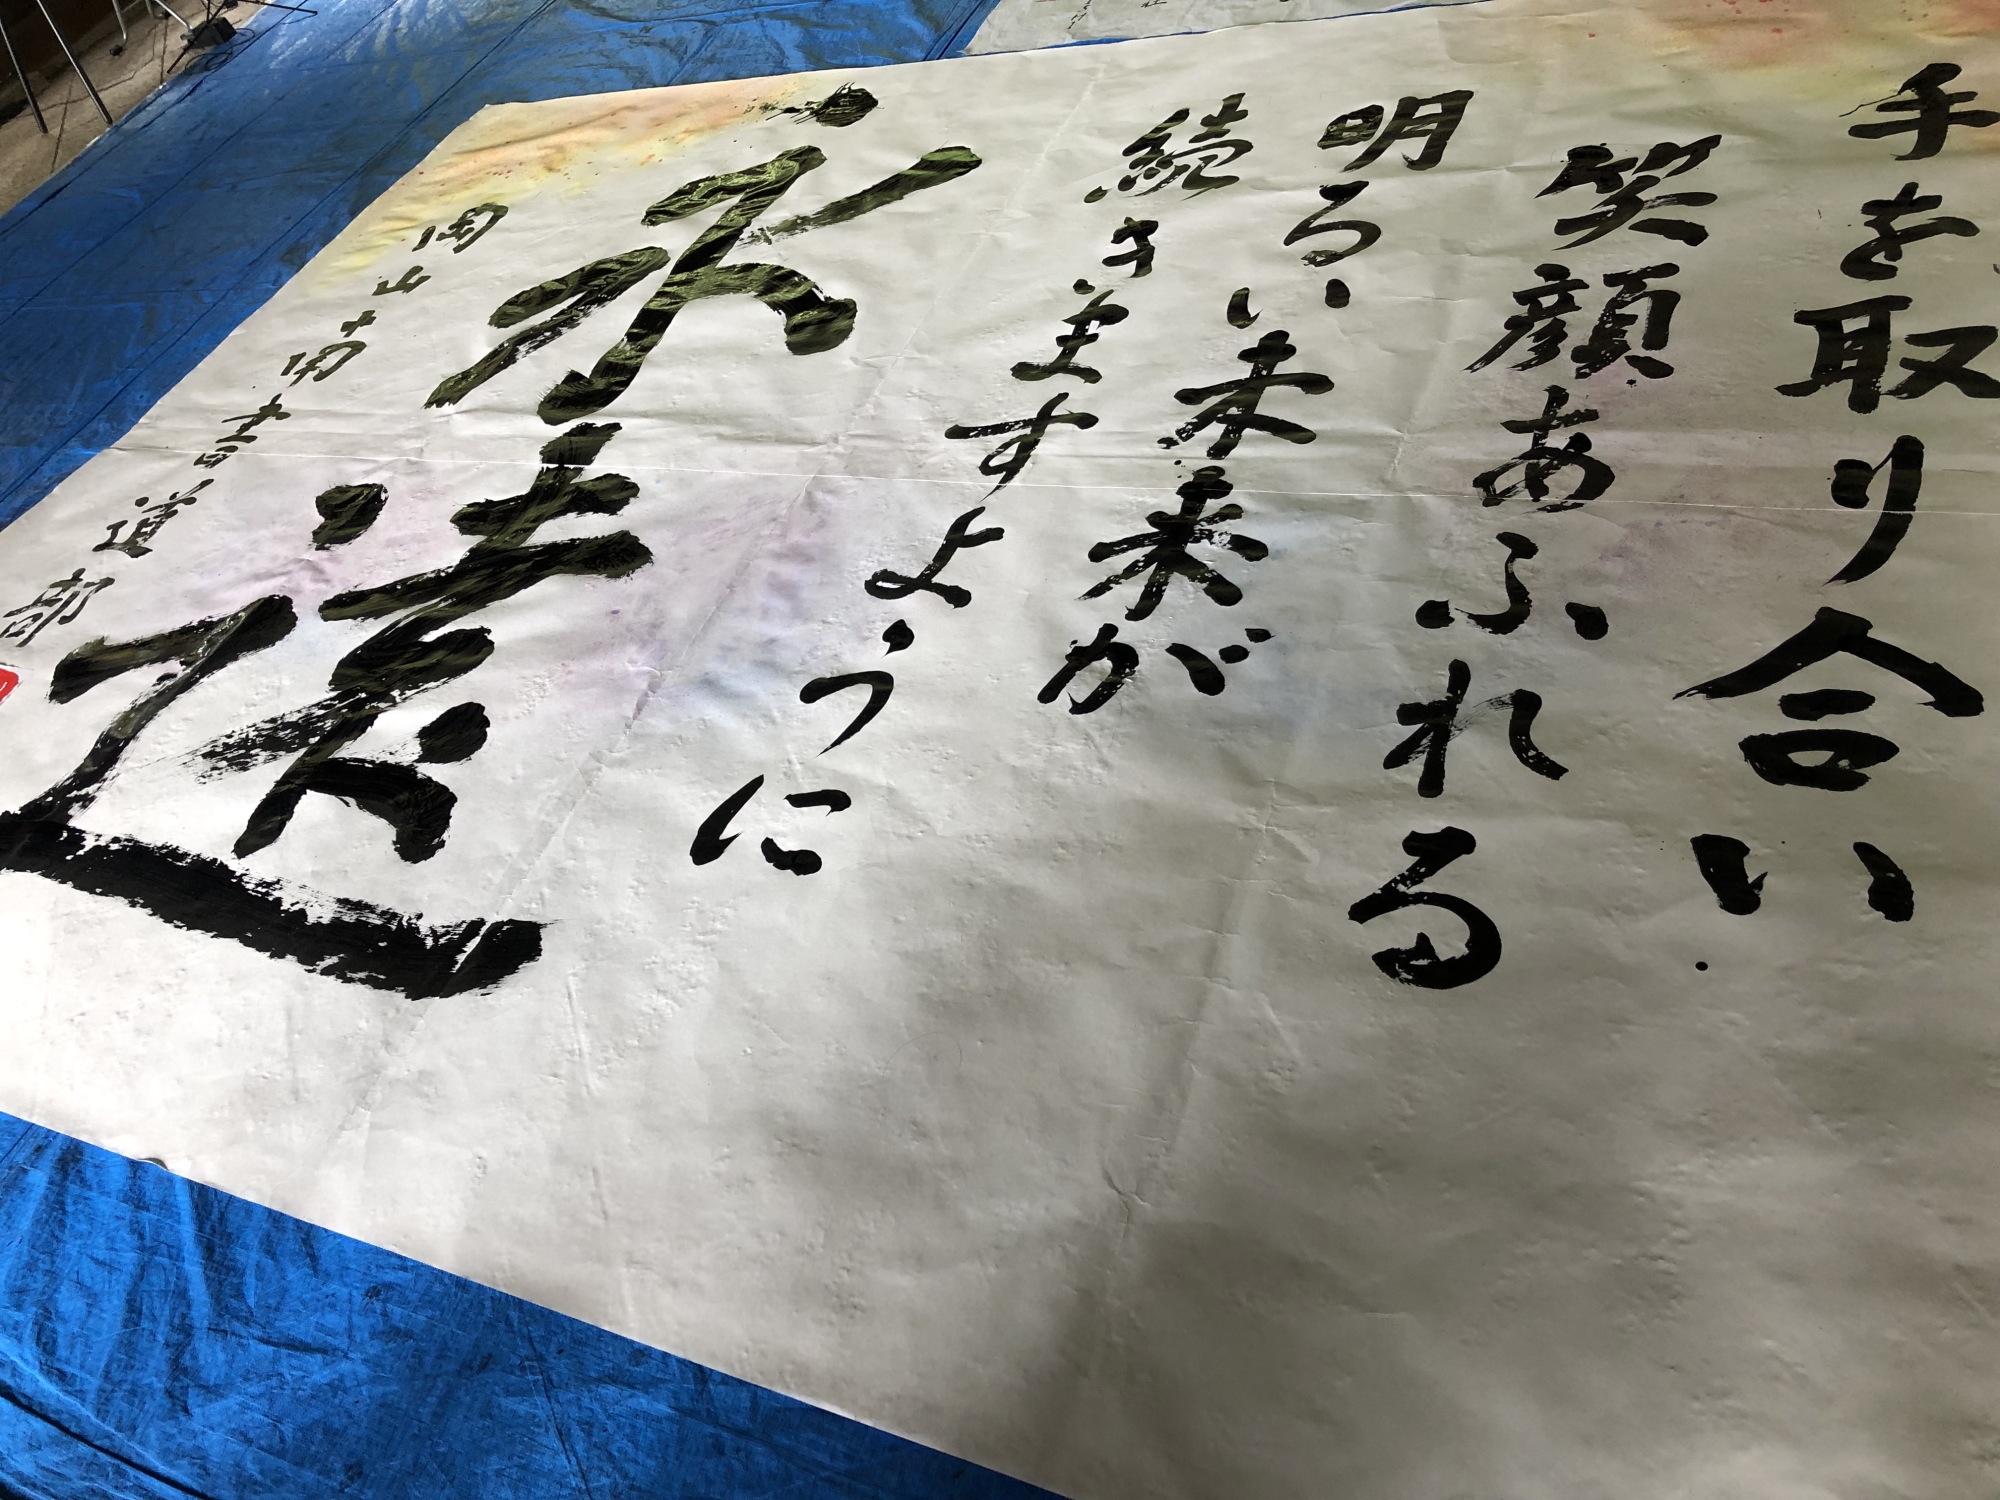 手を取り合い
笑顔あふれる
明るい未来が
続きますように
永遠
岡山南高書道部